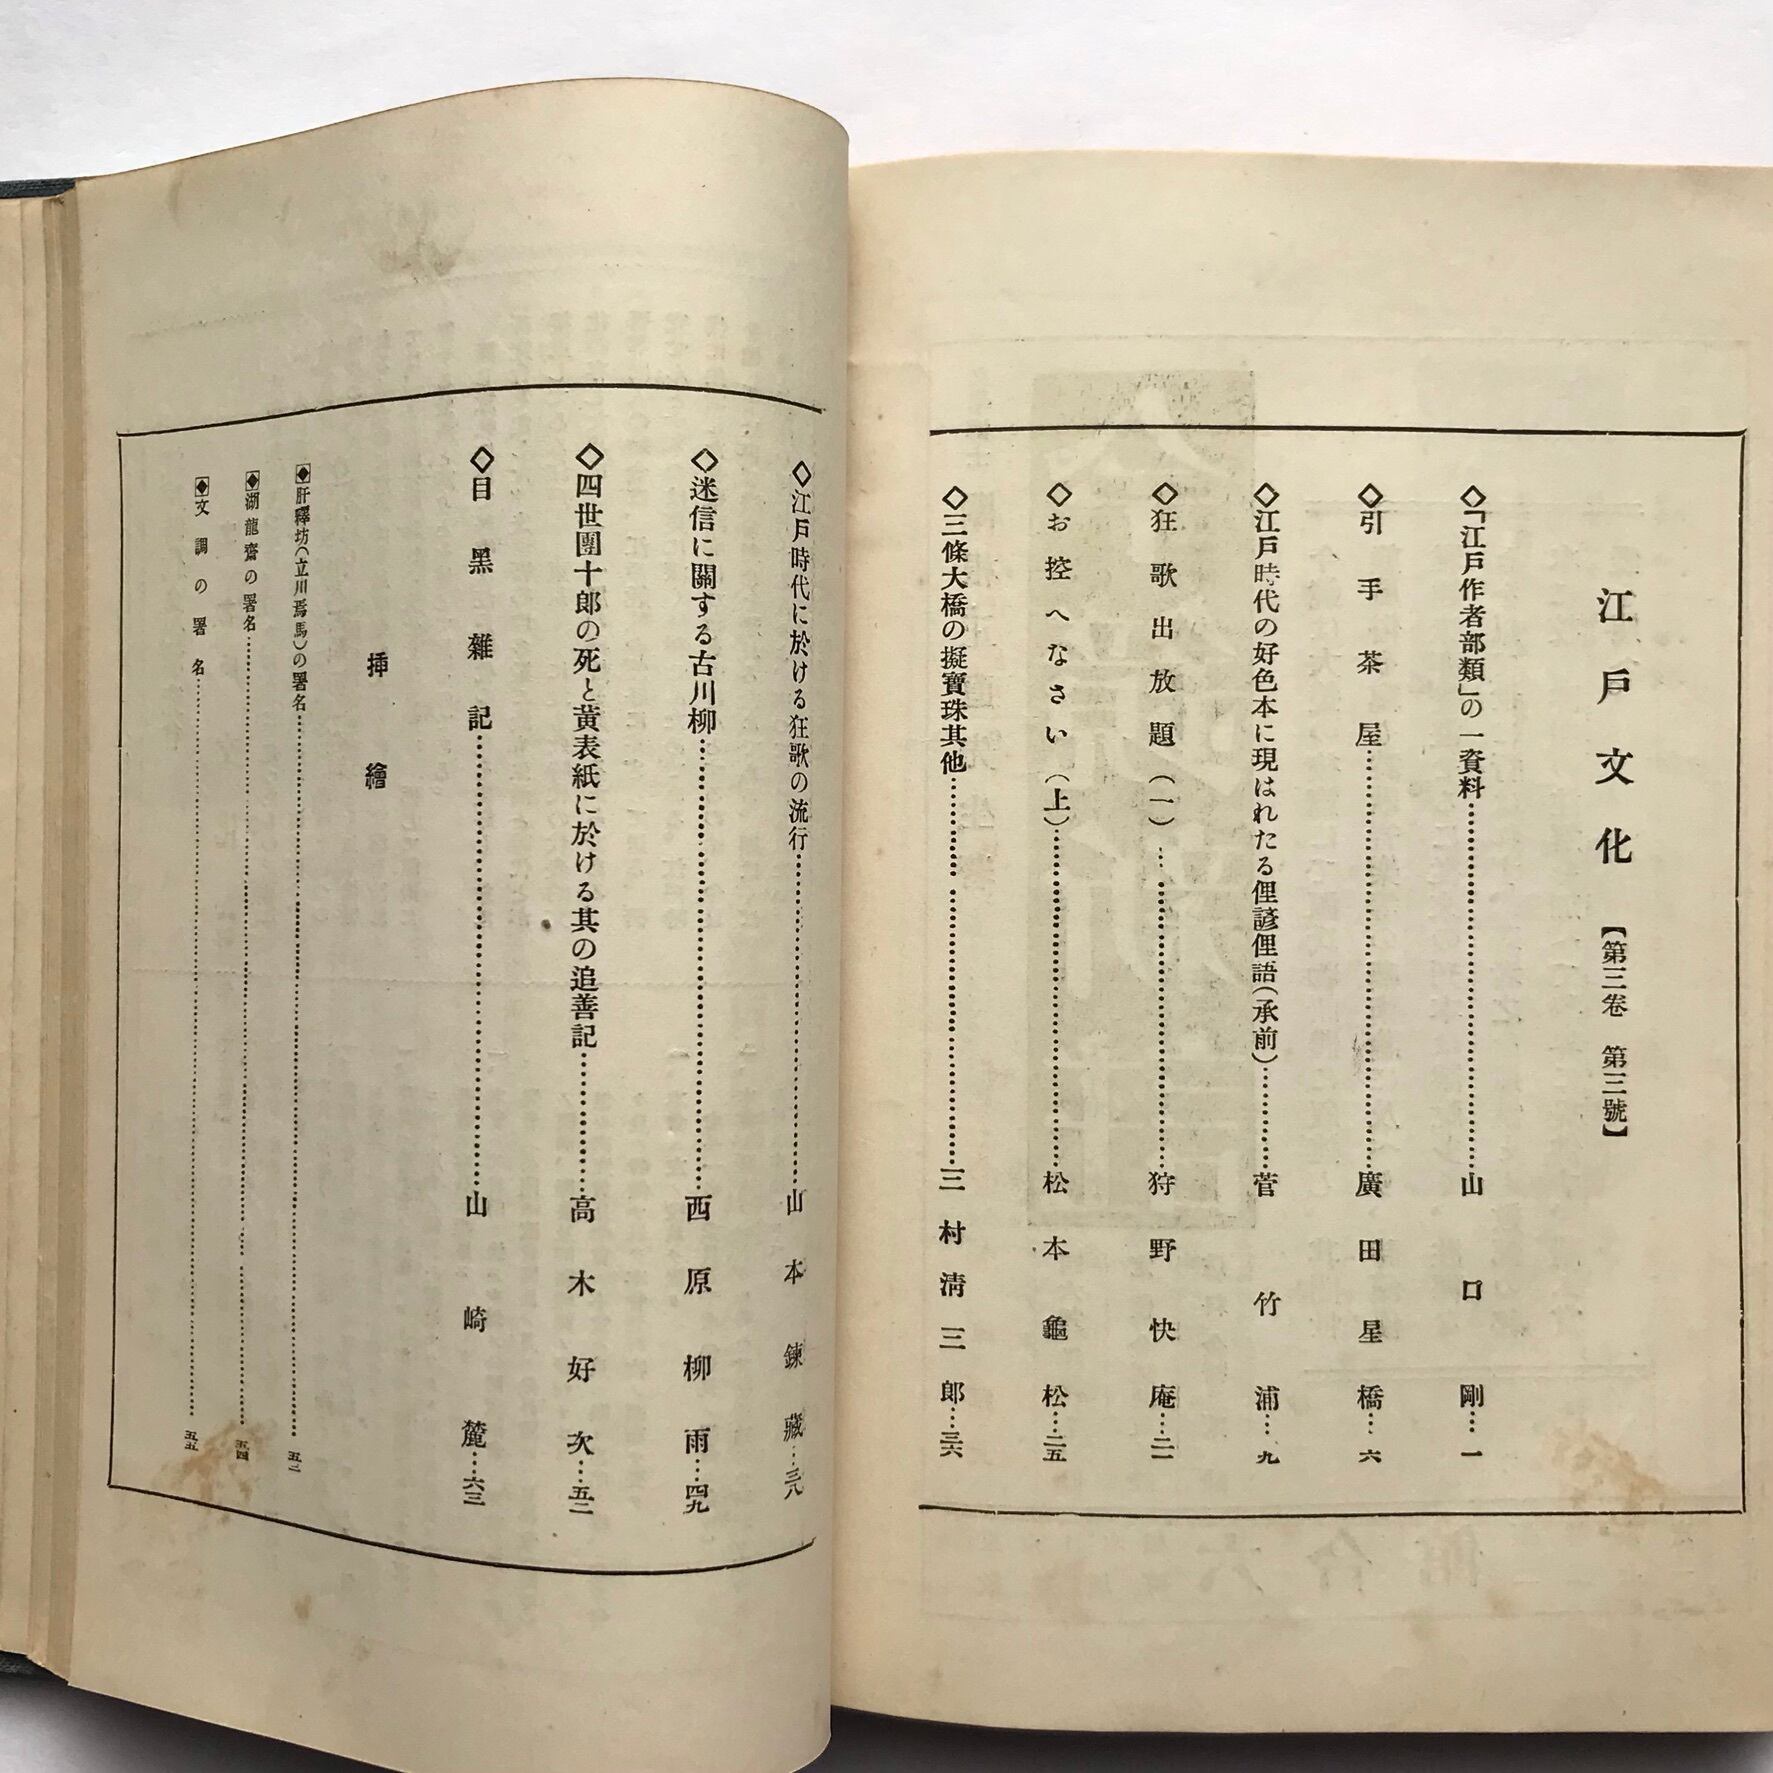 江戸文化【第三卷　第三號】
◇「江戸作者部類」の一資料……山口剛…一
◇引手茶屋……廣田星橋…六
◇江戸時代の好色本に現はれたる俚諺俚語(承前)……菅竹浦…九
◇狂歌出放題(一)……狩野快庵…二一
◇お控へなさい(上)……松本龜松…二五
◇三條大橋の擬寶珠其他……三村淸三郎…三六
◇江戸時代に於ける狂歌の流行……山本錬藏…三八
◇迷信に關する古川柳……西原柳雨…四九
◇四世團十郎の死と黄表紙に於ける其の追善記……高木好次…五二
◇目黑雜記……山崎麓…六三
挿繪
◈肝釋坊(立川焉馬)の署名……五二
◈湖龍齋の署名……五四
◈文調の署名……五五